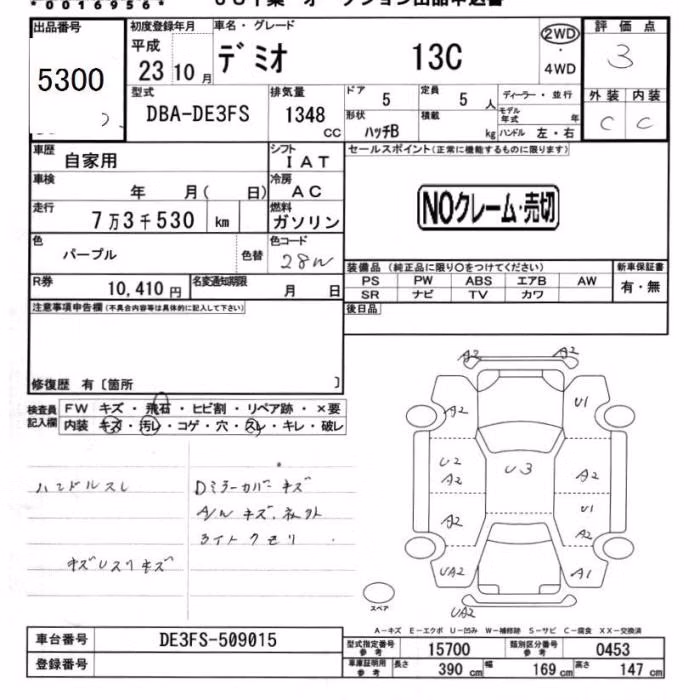 *0016956*
出品番号
5300
初度登録年月
平成
23 10 月
車名・グレード
デミオ 13C
2WD
・
4WD
評価点
3
型式
DBA-DE3FS
排気量
1348
CC
ドア
5
定員
5 人
ディーラー・並行
形状
ハッチB
積載
kg
モデル
年式
年
ハンドル 左・右
外装 内装
C C
車歴
自家用
シフト
IAT
車検
年 月( 日)
冷房
AC
走行
7万3千530 km
燃料
ガソリン
色
パープル
色替
色コード
28W
R券
10,410 円
名変通知期限
月 日
セールスポイント(正常に機能するものに限ります)
NOクレーム・売切
装備品 (純正品に限り○をつけてください)
PS PW ABS エアB AW
SR ナビ TV カワ
新車保証書
有・無
後日品
注意事項申告欄(不具合内容等は具体的に記入して下さい)
修復歴 有〔箇所 〕
検査員
記入欄
FW キズ・飛石・ヒビ割・リペア跡・×要
内装 キズ・汚レ・コゲ・穴・スレ・キレ・破レ
ハンドルスレ
Dミラーカバーキズ
A/Wキズ
ライトクモリ
A2 A2
A2 U1
U2
A2
U3
A2
A2
U1
A2
UA2 A1
UA2
スペア
A-キズ E-エクボ U-凹み W-補修跡 S-サビ C-腐食 XX-交換済
車台番号
DE3FS-509015
登録番号
型式指定番号
参考
15700
類別区分番号
参考
0453
車庫証明用
参考
長さ
390 cm
幅
169 cm
高さ
147 cm